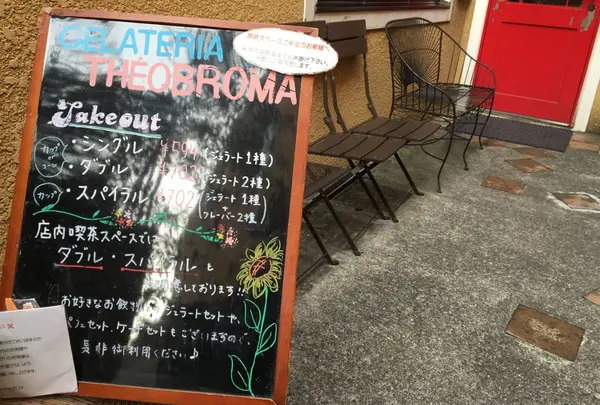 GELATERIA
THÉOBROMA
Takeout
カップ or コーン
・シングル ¥594 (ジェラート1種)
・ダブル ¥702 (ジェラート2種)
カップ
・スパイラル ¥702 (ジェラート1種
+
フレーバー2種)
店内喫茶スペースでは
ダブル・スパイラルも
用意しております!!
お好きなお飲 ジェラートセットや
パフェセット、ケーキセットもございますので
是非御利用ください♪